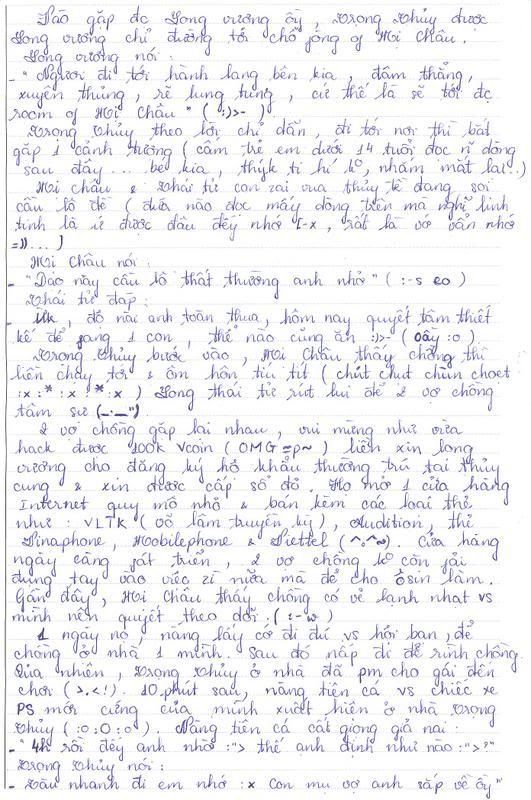 Láo gặp đc Long vương ấy, Trọng Thủy được
Long vương chỉ đường tới chỗ fòng of Mỵ Châu.
Long vương nói:
- "Ngươi đi tới hành lang bên kia, đâm thẳng,
xuyên thủng, rẽ lung tung, cứ thế là sẽ tới đc
room of Mị Châu" ( :)>- )
Trọng Thủy theo lời chỉ dẫn, đi tới nơi thì bắt
gặp 1 cảnh tượng (cấm trẻ em dưới 14 tuổi đọc n~ dòng
sau đây ... bé kia, thýk ti hí ko, nhắm mắt lại..)
Mị Châu & thái tử con zai vua thủy tề đang soi
cầu lô đề (đứa nào đọc mấy dòng trên mà nghĩ linh
tinh là ứ được đâu đếy nhớ [-x, rất là vớ vẩn nhớ
=))... )
Mị Châu nói:
- "Dạo này cầu lô thất thường anh nhở" ( :-s eo)
Thái tử đáp:
- Uk, độ nài anh toàn thua, hôm nay quyết tâm thiết
kế để fang 1 con, thể nào cũng ăn :)>- (Oầy :o)
Trọng Thủy bước vào, Mị Châu thấy chồng thì
liền chạy tới & ôm hôn tíu tít (chút chut chùn choet
:x :* :x :* :x) Long thái tử rút lui để 2 vợ chồng
tâm sự (_._").
2 vợ chồng gặp lại nhau, vui mừng như vừa
hack được 100k Vcoin (OMG =p~) liền xin long
vương cho đăng ký hộ khẩu thường trú tại thủy
cung & xin được cấp sổ đỏ. Họ mở 1 cửa hàng
Internet quy mô nhỏ & bán kèm các loại thẻ
như: VLTK (võ lâm truyền kỳ), Audition, thẻ
Vinaphone, Mobilephone & Viettel (^.^~). Cửa hàng
ngày càng fát triển, 2 vợ chồng ko còn fải
đụng tay vào việc zì nữa mà để cho ôsin làm.
Gần đây, Mị Châu thấy chồng có vẻ lạnh nhạt vs
mình nên quyết theo dõi. ( :-w )
1 ngày nọ, nàng lấy cớ đi dú vs hội bạn, để
chồng ở nhà 1 mình. Sau đó nấp đi để rình chồng.
Quả nhiên, Trọng Thủy ở nhà đã pm cho gái đến
chơi (>.<!). 10 phút sau, nàng tiên cá vs chiếc xe
PS mới cứng của mình xuất hiện ở nhà Trọng
Thủy (:o:O:o). Nàng tiên cá cất giọng giả nai:
- "4h rồi đếy anh nhở :"> thế anh định như nào :">?"
Trọng Thủy nói:
- Vào nhanh đi em nhớ :x con mụ vợ anh sắp về ồy"